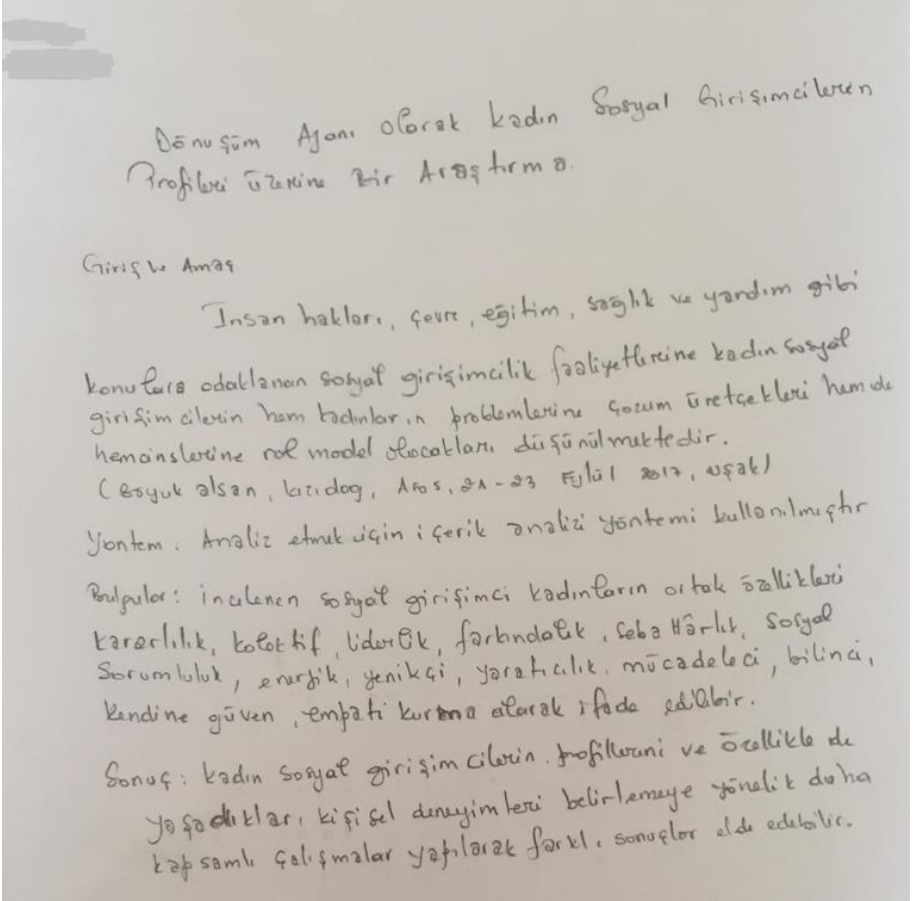 Dönuşüm Ajanı olarak kadın Sosyal Girişimcileren
Profileri üzerine Bir Araştırma.
Giriş ve Amaç
İnsan hakları, çevre, eğitim, sağlık ve yardım gibi
konulara odaklanan sosyal girişimcilik faaliyetlerine kadın sosyal
girişimcilerin hem kadınların problemlerine çozum üretçekleri hemde
hemcinslerine rol model olacakları düşünülmektedir.
( kızıdag, Afos, 21-23 Eylül 2017, uşak)
Yontem: Analiz etmek için içerik analizi yöntemi kullanılmıştır
Bulgular: incelenen sosyal girişimci kadınların ortak özellikleri
kararlılık, kolektif, liderlik, farkındalık, Sosyal
Sorumluluk, enerjik, yenikçi, yaratıcılık, mücadeleci, bilinci,
kendine güven, empati kurma olarak ifade edilibir.
Sonuç: kadın sosyal girişimcilerin profillerini ve özellikle de
yaşadıkları kişisel deneyimleri belirlemeye yönelik daha
kapsamlı çalışmalar yapılarak farklı sonuçlar elde edebilir.